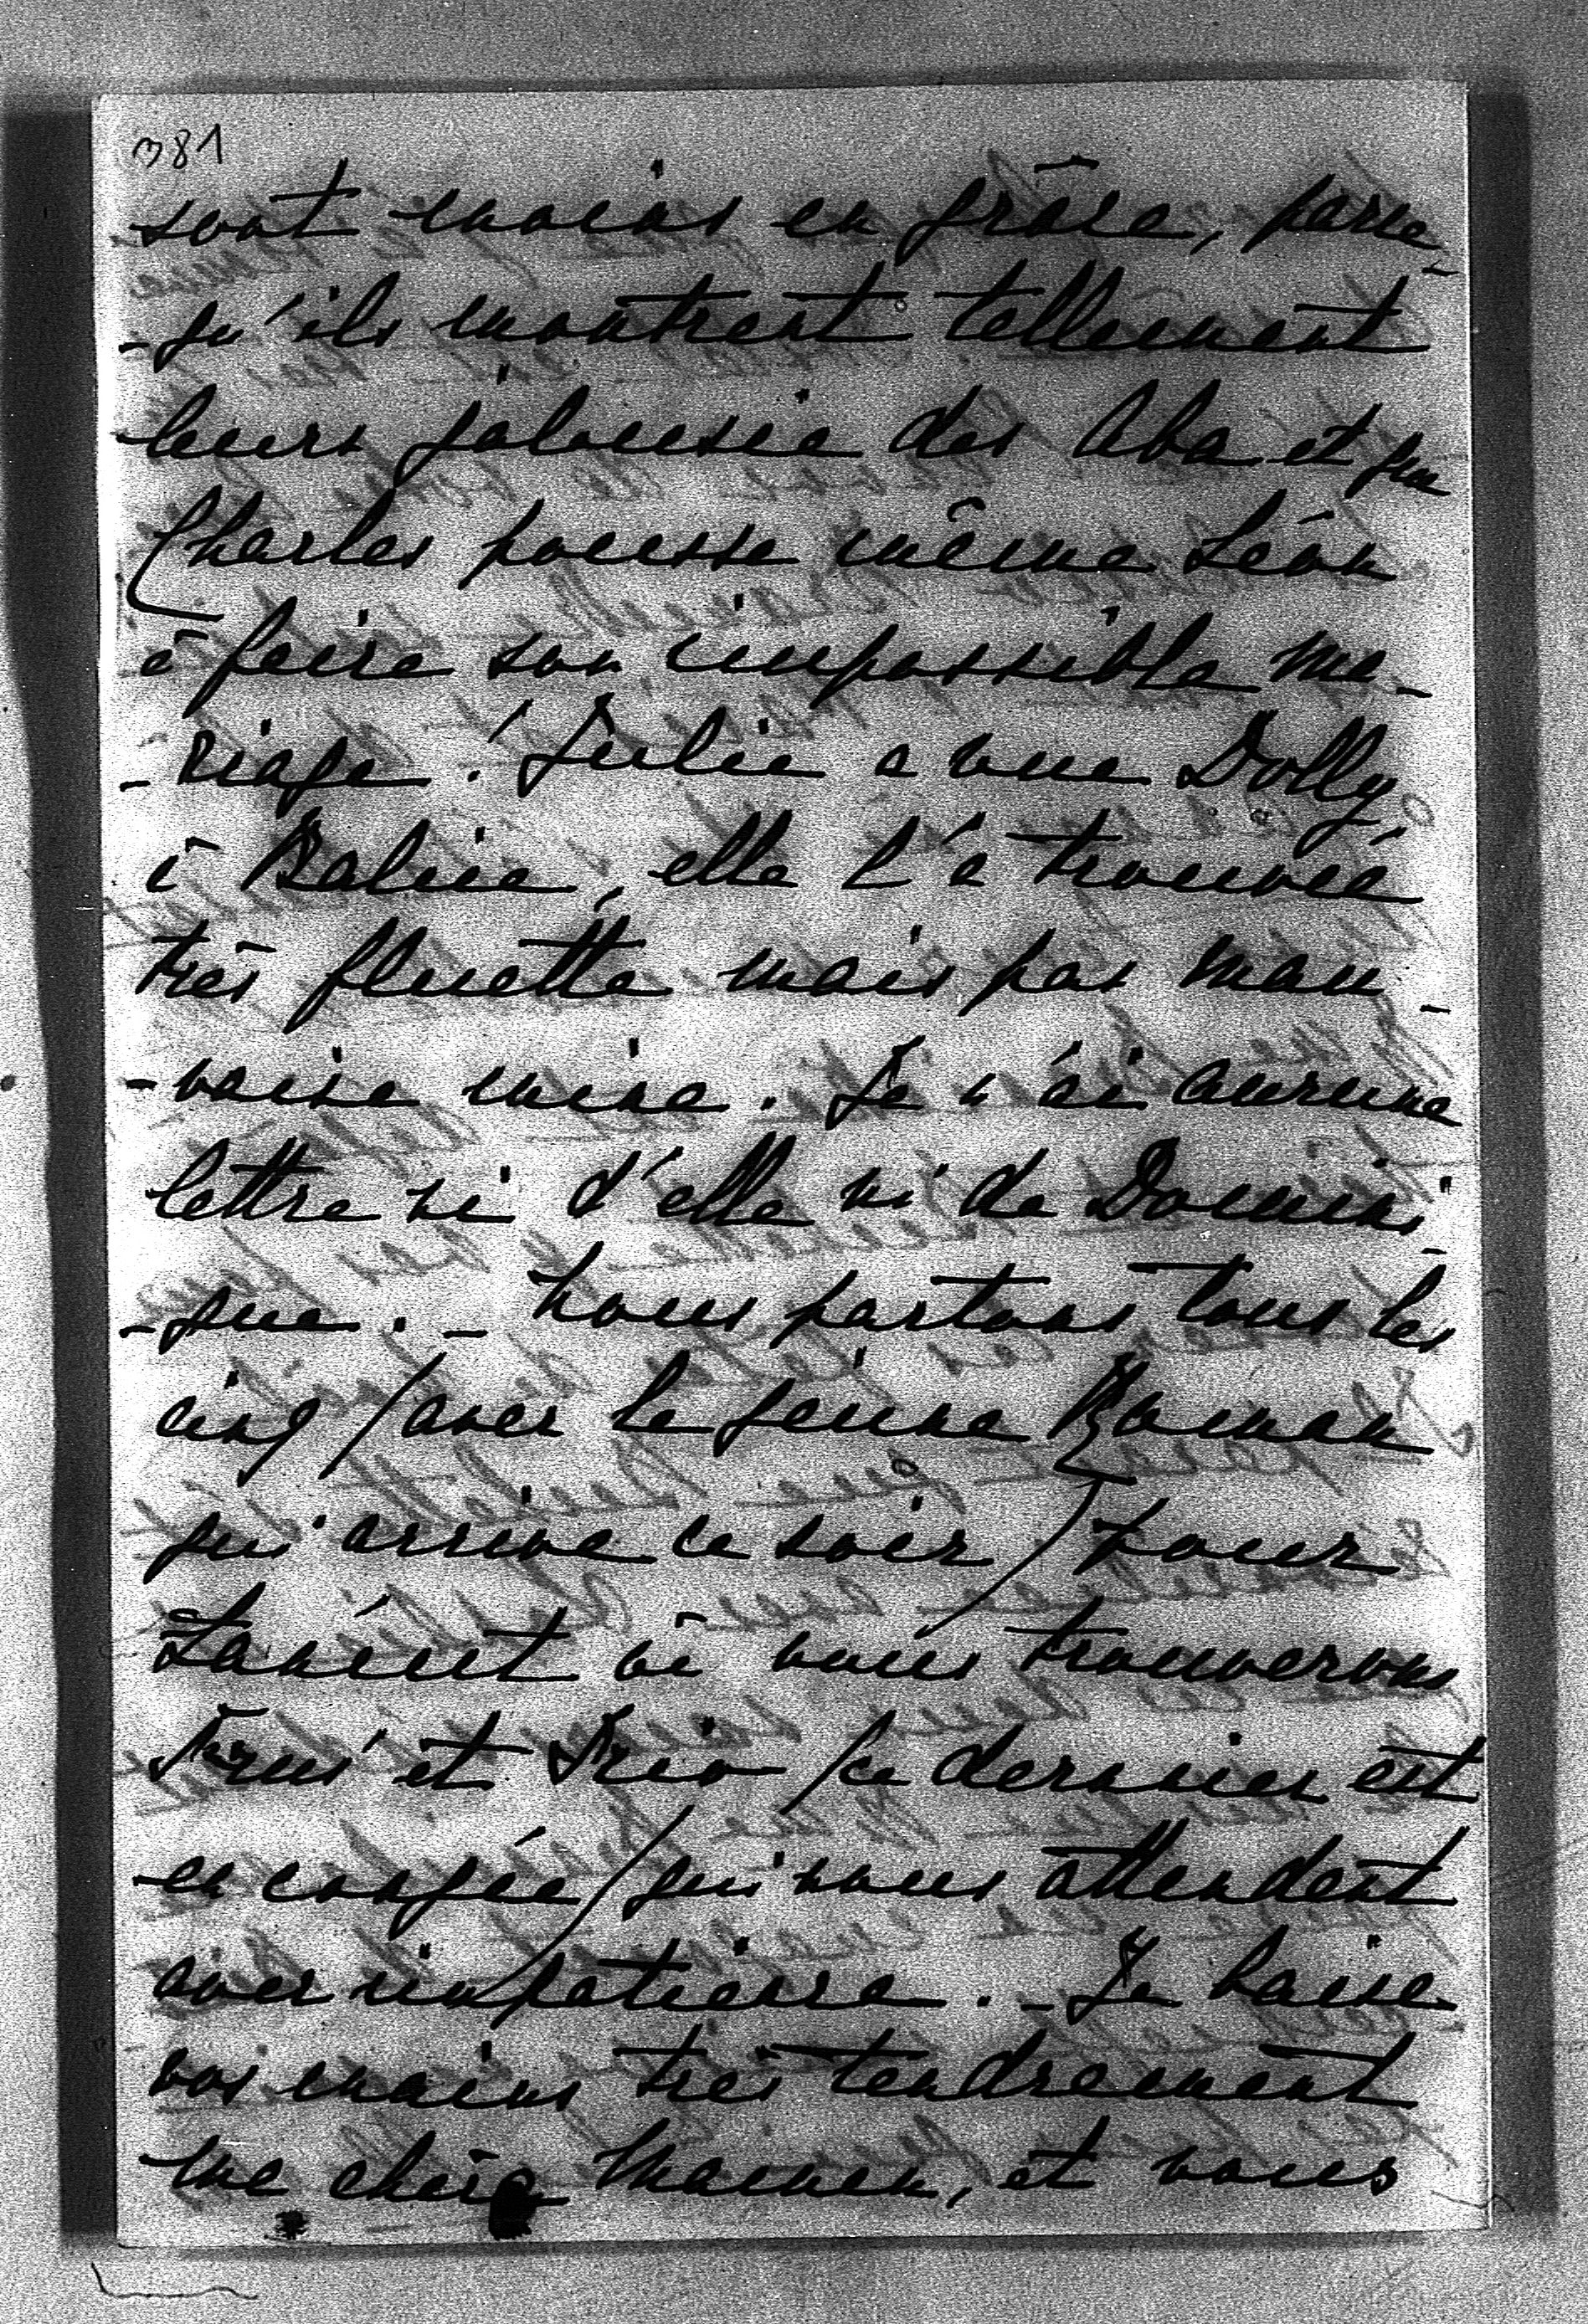 381
sont moins en grâce, parce-
-qu'ils montrent tellement
leurs jalousie des Aba et que
Charles pousse même Léon
à faire son impossible ma-
-riage! Julie a vue Dolly
à Balice, elle l'a trouvée
très fluette mais pas mau-
-vaise mine. Je n'ai aucune
lettre ni d'elle ni de Domini-
-que. - Nous partons tous les
cinq /avec le jeune Roman
qui arrive ce soir/ pour
Łańcut où nous trouverons
et Frio /ce dernier est
en congée/ qui nous attendent
avec impatience. - Je baise
vos mains très tendrement
ma chère Maman, et vous